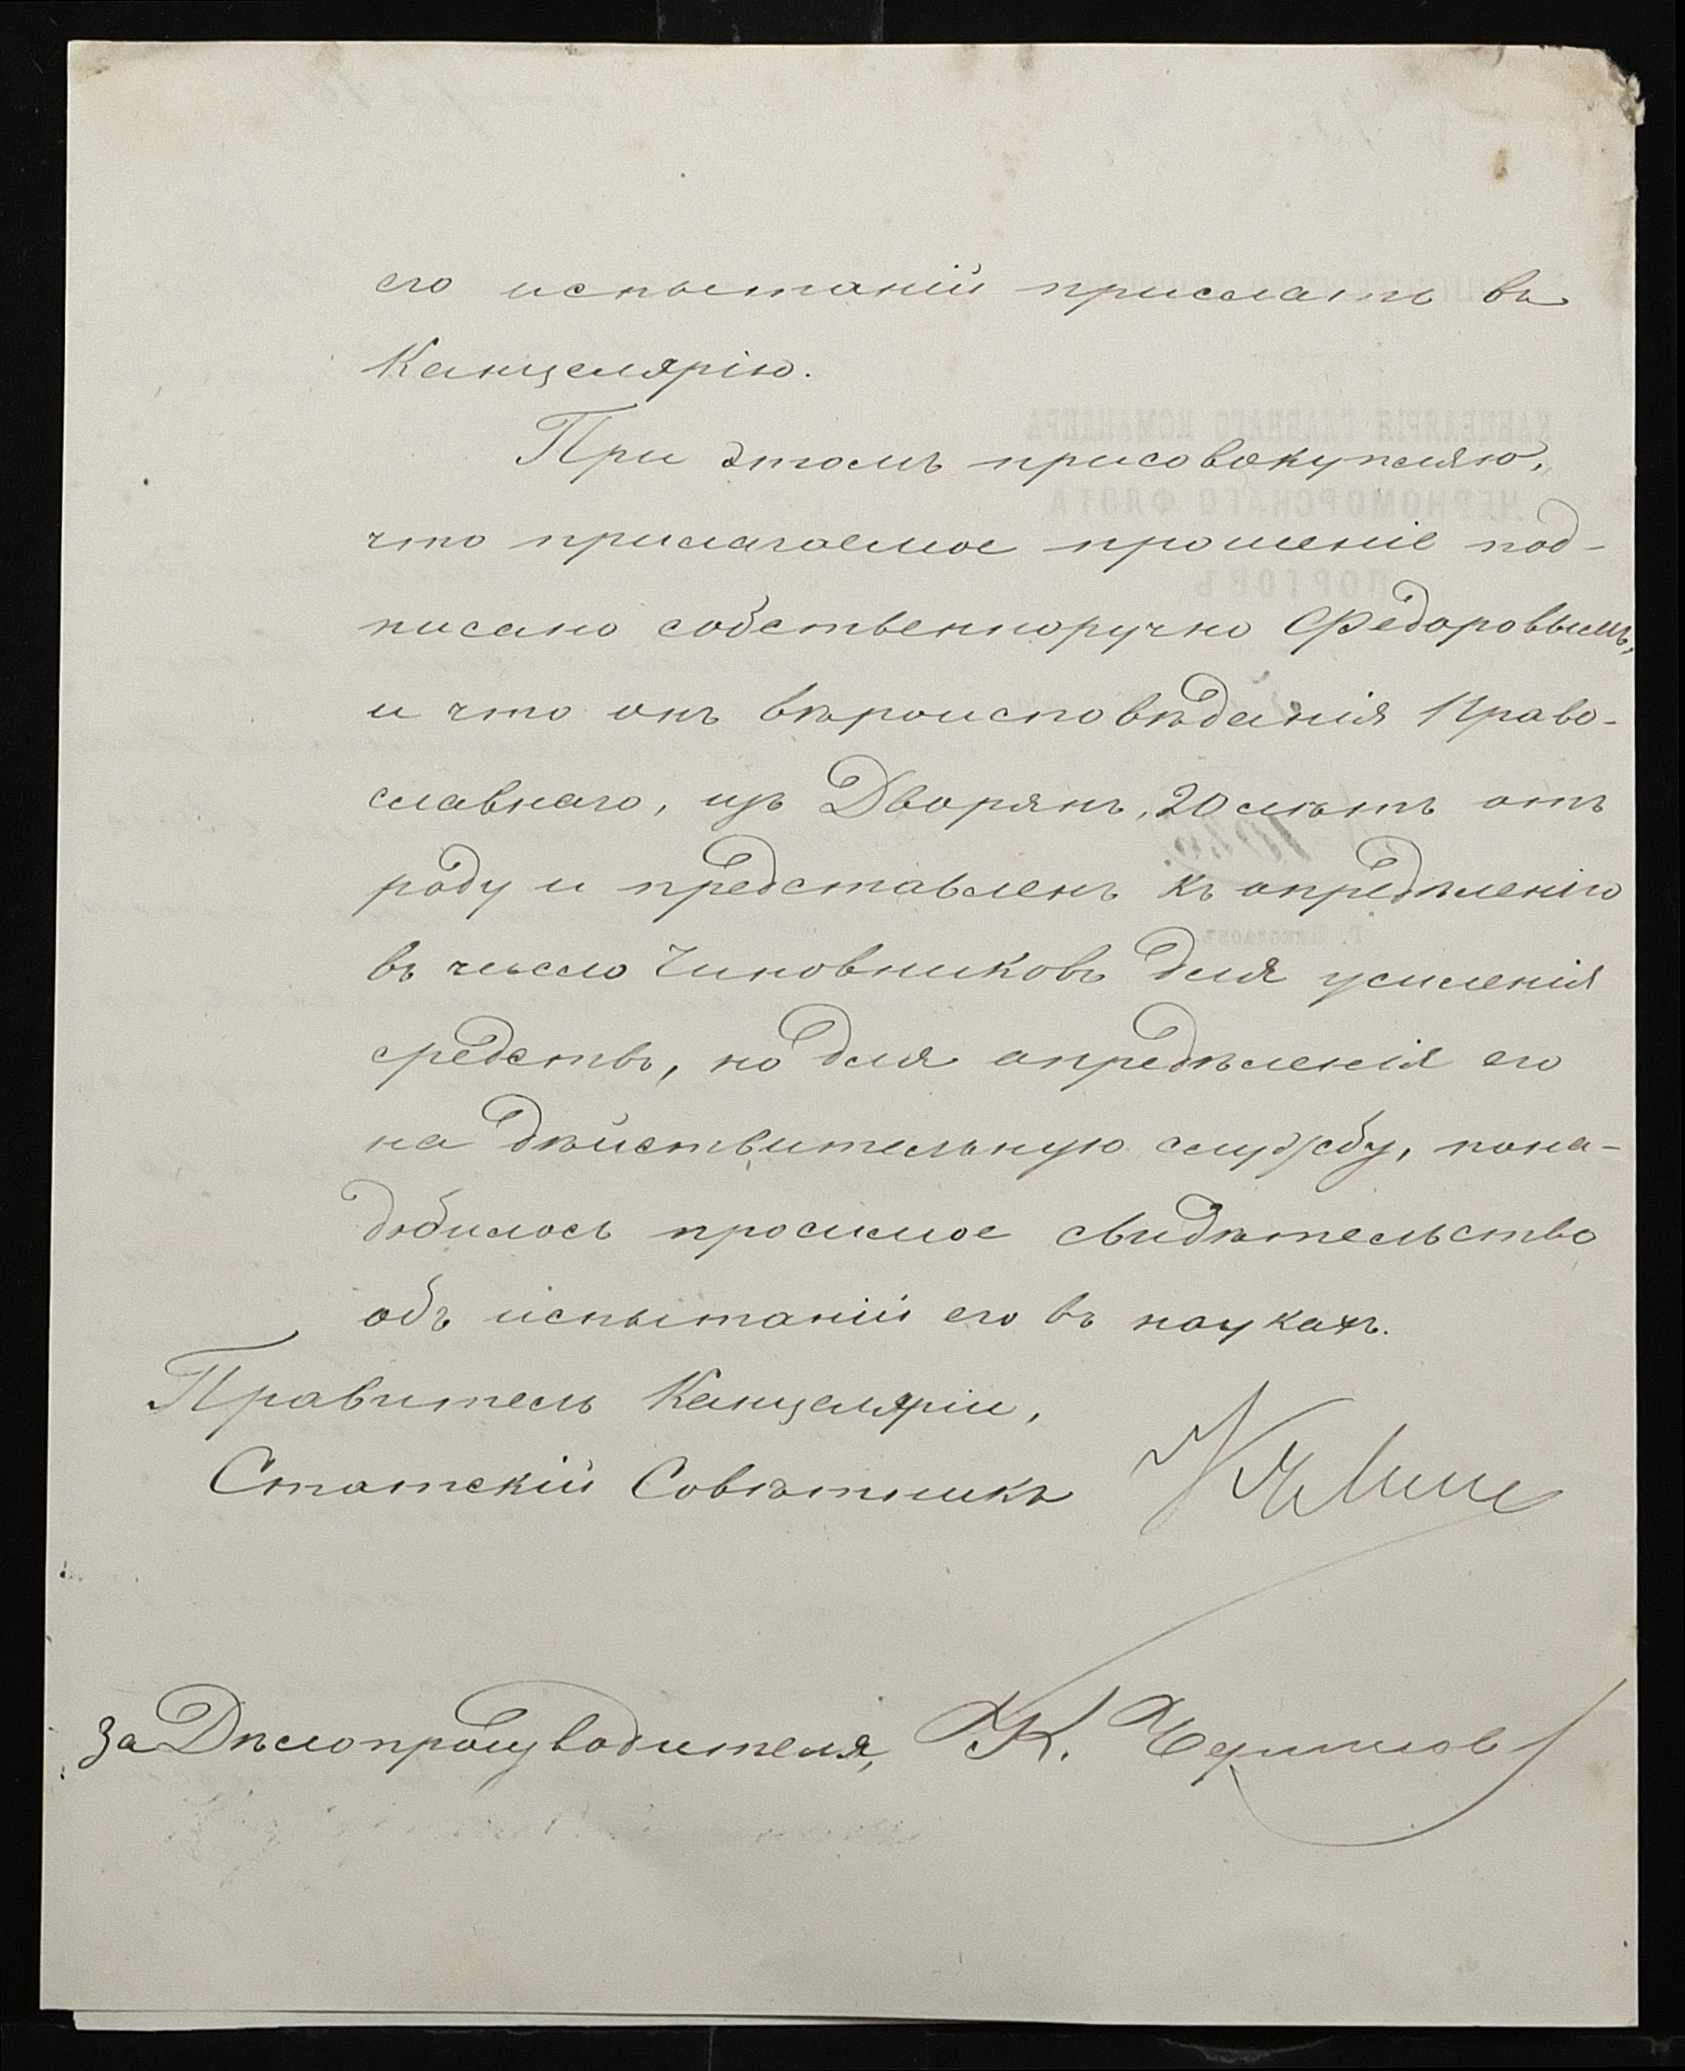 его испытаній прислать въ
Канцелярію.
При этомъ присовокупляю,
что прилагаемое прошеніе под-
писано собственноручно Федоровымъ,
и что онъ вѣроисповѣданія Право-
славнаго, изъ Дворянъ, 20 лѣтъ отъ
роду и представленъ къ опредѣленію
въ число Чиновниковъ для усиленія
средствъ, но для опредѣленія его
на дѣйствительную службу, пона-
добилось просимое свидѣтельство
объ испытаніи его въ наукахъ.
Правитель Канцеляріи,
Статскій Совѣтникъ
За Дѣлопроизводителя, К.
КАНЦЕЛЯРІЯ ГЛАВНАГО КОМАНДИРА
ЧЕРНОМОРСКАГО ФЛОТА
ПОРТОВЪ
Г. Николаевъ